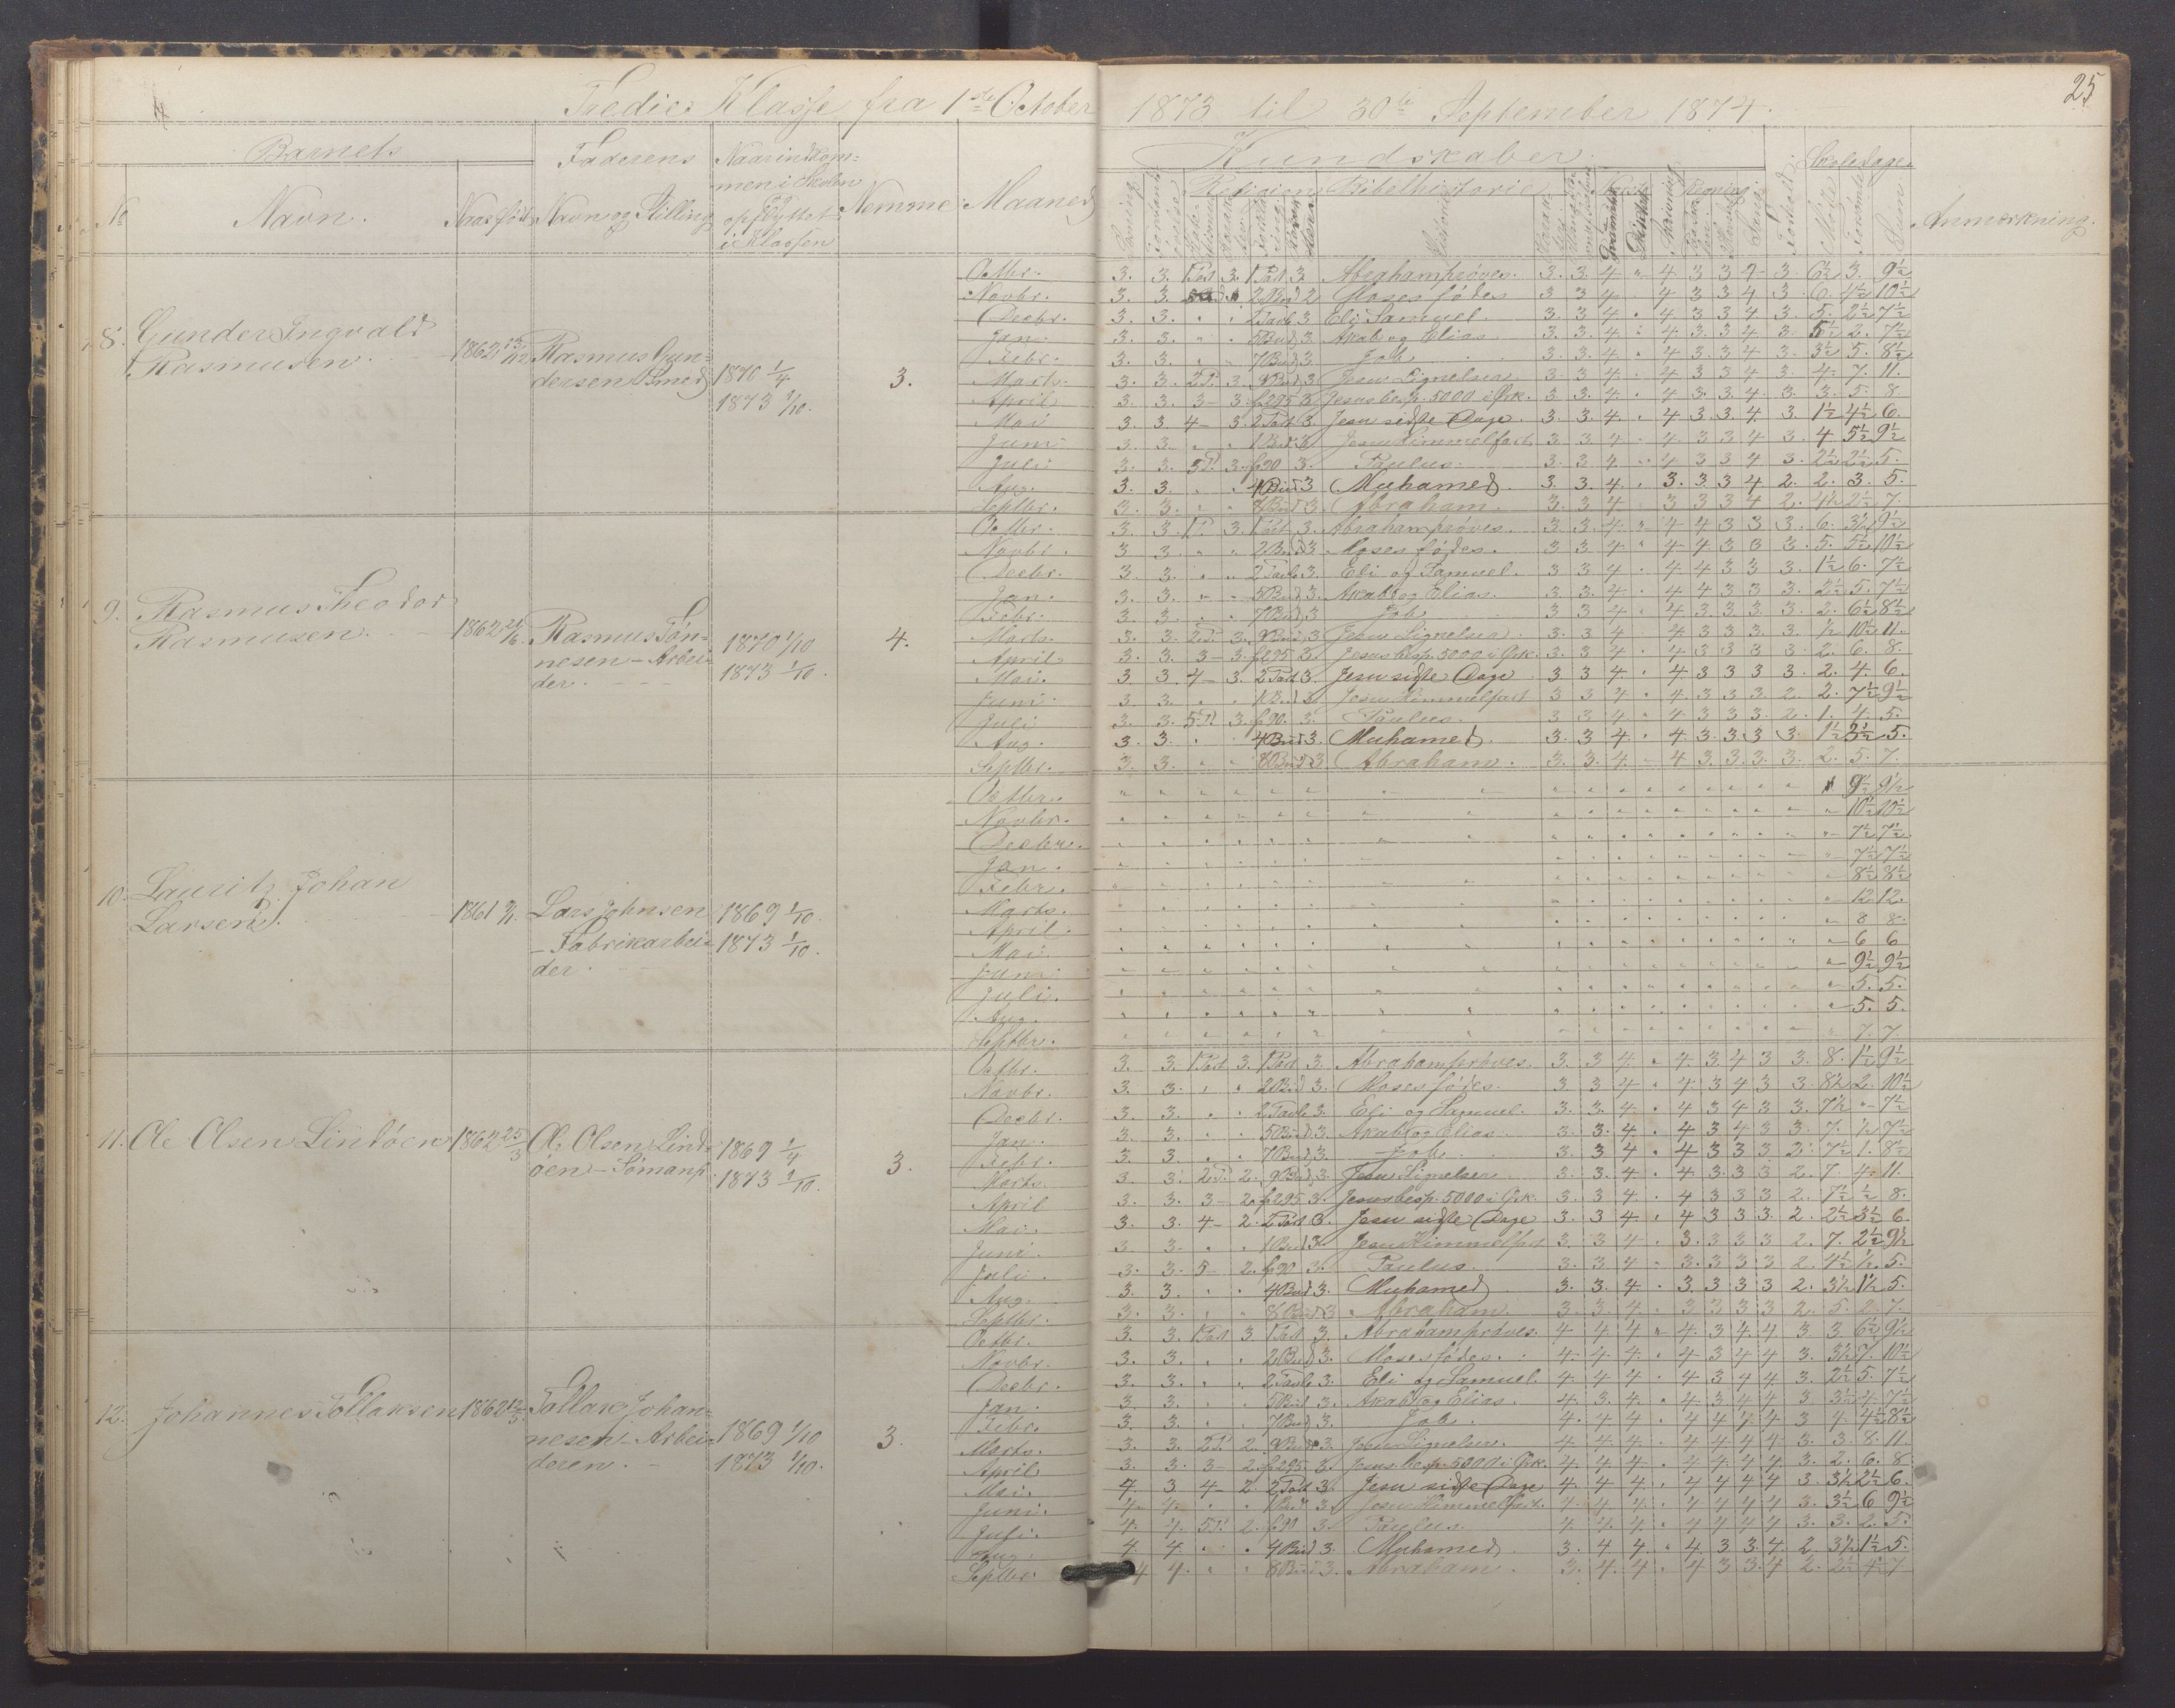 Tredie Klasse fra 1ste October 1873 til 30te September 1874.
25
Barnets
Faderens
Naar indkommen i Skolen og opflyttet i Klassen
Nemme
Maaned
Kundskaber
Skoledage.
Anmærkning.
No
Navn.
Naar født
Navn og Stilling
Religion
Bibelhistorie
Regning
Møtt
Forsømt
Sum
8. Gunder Ingvald Rasmusen. 1862 13/12 Rasmus Gundersen Smed 1870 1/4 1873 1/10. 3.
Octbr. 3. 3. 1 Part 3. 1 Part 3 Abraham prøves. 3. 3. 4 " 4 3 3 4 3. 6½ 3. 9½
Novbr. 3. 3. 2 Bud 2 Moses fødes 3 3 4 . 4 3 3 4 3. 6. 4½ 10½
Decbr. 3. 3. " " 2 Tavle 3 Eli Samuel. 3. 3. 4 . 4 3 3 4 3. 5. 2½ 7½
Jan. 3. 3. " " 5 Bud 3. Akab og Elias 3. 3. 4 . 4. 3. 3 4 3. 5½ 2. 7½
Febr. 3. 3. " " 7 Bud 3. Job 3. 3. 4 . 4 3. 3 4 3. 3½ 5. 8½
Marts. 3. 3. 2 P. 3. 9 Bud 3 Jesu Lignelser. 3. 3 4 . 4 3 3 4 3. 4. 7. 11.
April 3. 3. 3 - 3. f. 295 3. Jesus besp. 5000 i Ørk. 3. 3. 4. . 4 3. 3. 4. 3. 3. 5. 8
Mai 3. 3. 4 - 3. 2 Part 3. Jesu sidste Dage. 3. 3. 4. . 4. 3. 3. 4. 3. 1½ 4½ 6.
Juni 3. 3. " " 1 Bud 3. Jesu Himmelfart. 3. 3 4 . 4. 3 3 4 3. 4 5½ 9½
Juli 3. 3. 5 P. 3. f. 90 3. Paulus. 3. 3 4 . 4 3 3 4 3. 2½ 2½ 5.
Aug. 3. 3. . . 4 Bud 3 Muhamed. 3. 3. 4. . 3. 3. 3 4 2. 2. 3. 5.
Septbr. 3. 3. . . 8 Bud 3. Abraham. 3. 3 4 . 3 3 3 4 2. 4½ 2½ 7.
9. Rasmus Theodor Rasmusen. 1862 21/6. Rasmus Tønnesen - Arbeider. 1870 1/10 1873 1/10. 4.
Octbr. 3. 3. 1 P. 3. 1 Part 3. Abraham prøves. 3. 3. 4. " 4 4 3 3 3. 6. 3½ 9½
Novbr. 3 3. " " 2 Bud 3 Moses fødes. 3 3 4 " 4 4 3 3 3. 5. 5½ 10½
Decbr. 3. 3. " " 2 Tavle 3. Eli og Samuel. 3 3 4 . 4 4 3 3 3. 1½ 6. 7½
Jan. 3. 3. " " 5 Bud 3. Akab og Elias. 3. 3. 4 . 4 4 3 3 3. 2½ 5. 7½
Febr. 3. 3. " " 7 Bud 3 Job 3 3 4 . 4 3 3. 3. 3. 2. 6½ 8½
Marts. 3. 3. 2 P. 3. 9 Bud 3 Jesu Lignelser. 3. 3 4 . 4 3 3 3. 3. ½ 10½ 11.
April. 3. 3. 3 - 3. f. 295 3. Jesus besp. 5000 i Ørk. 3. 3 4 . 4 3 3 3 3. 2. 6. 8.
Mai. 3 3. 4 - 3. 2 Part 3. Jesu sidste Dage 3 3 4 . 4 3 3 3 3. 2. 4. 6.
Juni. 3. 3. " " 1 Bud 3. Jesu Himmelfart 3 3 4 . 4 3. 3. 3. 2. 2. 7½ 9½
Juli 3. 3. 5 P. 3. f. 90. 3. Paulus. 3 3 4 . 4 3 3 3. 2. 1. 4. 5.
Aug. 3. 3. . . 4 Bud 3. Muhamed. 3. 3 4 . 4 3. 3. 3 3. 1½ 3½ 5.
Septbr. 3. 3. . . 8 Bud 3 Abraham. 3. 3. 4. - 4 3. 3. 3. 3. 2. 5. 7.
10. Lauritz Johan Larsen. Lars Johnsen - Fabrikarbeider. 1869 1/10. 1873 1/10.
Octbr. 9½ 9½
Novbr. 10½ 10½
Decbr. 7½ 7½
Jan. 7½ 7½
Febr. 8½ 8½
Marts. 12. 12.
April. 8 8.
Mai. 6 6
Juni 9½ 9½
Juli. 5. 5.
Aug. 5. 5.
Septbr. 7. 7.
11. Ole Olsen Lindøen 1862 25/3 Ole Olsen Lindøen - Sømand. 1869 1/4 1873 1/10. 3.
Octbr. 3. 3. 1 Part 3. 1 Part 3. Abraham prøves. 3. 3 4. . 4. 3 4 3 3. 8. 1½ 9½
Novbr. 3. 3. . . 2 Bud 3. Moses fødes. 3 3 4 . 4 3 4 3 3. 8½ 2. 10½
Decbr. 3. 3. . . 2 Tavle 3. Eli og Samuel. 3. 3. 4. . 4 3 4 3 3. 7½ " 7½
Jan. 3. 3. . . 5 Bud 3. Akab og Elias. 3. 3. 4. . 4 3 4 3 3. 7. ½ 7½
Febr. 3 3. . . 7 Bud 3. Job 3. 3 4 . 4 3 3 3 2. 7½ 1. 8½
Marts 3 3. 2 P. 2. 9 Bud 3. Jesu Lignelser 3. 3 4. . 4. 3 3. 3 2. 7. 4. 11.
April 3. 3. 3 - 2. f. 295 3. Jesus besp. 5000 i Ørk. 3. 3 4. . 4 3 3 3 2. 7½ ½ 8.
Mai. 3. 3. 4 - 2. 2 Part 3. Jesu sidste Dage 3. 3 4 . 4 3 3 3. 2. 2½ 3½ 6
Juni. 3 3. . . 1 Bud 3. Jesu Himmelfart 3. 3 4 . 3. 3 3 3 2. 7. 2½ 9½
Juli. 3. 3. 5 - 2. f. 90 3. Paulus. 3. 3 4 . 3. 3 3 3 2. 4½ ½. 5.
Aug. 3. 3. . . 4 Bud 3. Muhamed 3. 3. 4. . 3 3 3 3 2. 3½ 1½ 5.
Septbr. 3. 3. . . 8 Bud 3 Abraham. 3 3 4. . 3 3 3 3 2. 5. 2. 7.
12. Johannes Tollaksen 1862 Tollak Johannesen - Arbeideren. 1869 1/10 1873 1/10. 3.
Octbr. 3. 3. 1 Part 3 1 Part 3. Abraham prøves. 4 4 4 " 4. 3 4. 4 3 3 6½ 9½
Novbr. 3. 3. . . 2 Bud 3. Moses fødes. 4. 4. 4. . 4 3 4 4 3. 3½ 7. 10½
Decbr. 3. 3. . . 2 Tavle 3. Eli og Samuel. 4. 4 4 . 4 3 4 4 3. 2½ 5. 7½
Jan. 3. 3. . . 5 Bud 3. Akab og Elias. 4 3. 4. . 4 3 4 4 3 3½ 4. 7½
Febr. 3. 3. . . 7 Bud 3. Job. 4. 4 4 . 4 4 4 4 3 4. 4½ 8½
Marts. 3. 3. 2 P. 2. 9 Bud 3. Jesu Lignelser. 4. 4. 4. . 4 4 4 4 3. 3. 8. 11.
April 3. 3. 3 - 2. f. 295. 3. Jesus besp. 5000 i Ørk. 4. 4 4 . 4 4 4 4 3. 2. 6. 8
Mai. 4. 3 4 - 2. 2 Part 3. Jesu sidste Dage 4 4 4 . 4 4 4 4 3. 3½ 2½ 6.
Juni. 4. 4. . . 1 Bud 3. Jesu Himmelfart. 4. 4 4 . 4 4 4 4 3. 3½ 6 9½
Juli. 4. 4. 5 P. 2. f. 90 3. Paulus. 4 4. 4. . 4 4 4 4 3. 3. 2. 5.
Aug. 4. 4. . . 4 Bud 3. Muhamed 3. 4. 4. " 4 3 3 4 2 3½ 1½ 5.
Septbr. 4 4. . . 8 Bud 3. Abraham. 3. 4. 4 . 4 3 3. 4 2. 2½ 4½ 7